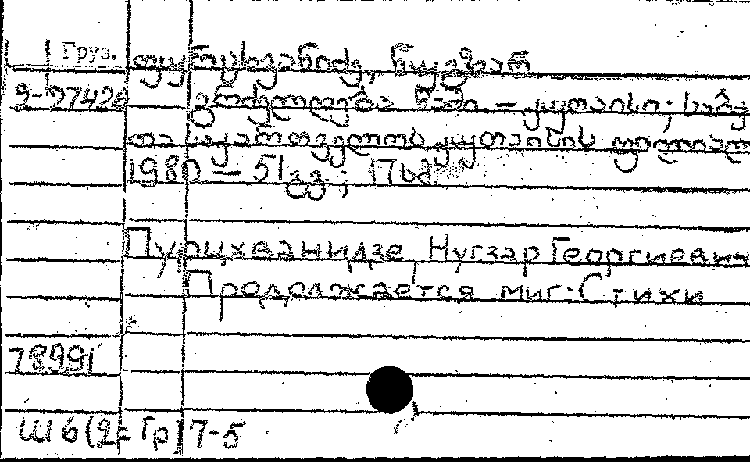 Груз. ფურცხვანიძე, ნუგზარ
2-27426 გრძელდება წამი — ქუთაისი: საბჭ
თა საქართველოს ქუთაისის ფილიალი
1980 — 51 გვ.; 17 სმ
Пурцхванидзе, Нугзар Георгиевич
Продолжается миг: Стихи
78991
Ш6(2=Гр)7-5